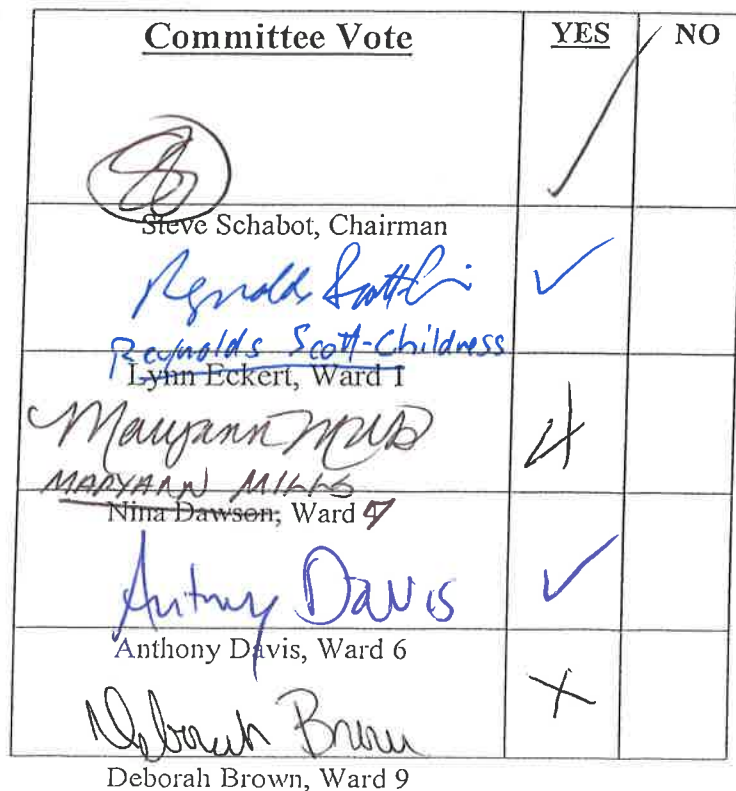 Committee Vote YES NO
Steve Schabot, Chairman
Reynolds Scott-Childress
Lynn Eckert, Ward 1
Maryann Mills
MARYANN MILLS
Nina Dawson, Ward 7
Anthony Davis
Anthony Davis, Ward 6
Deborah Brown
Deborah Brown, Ward 9